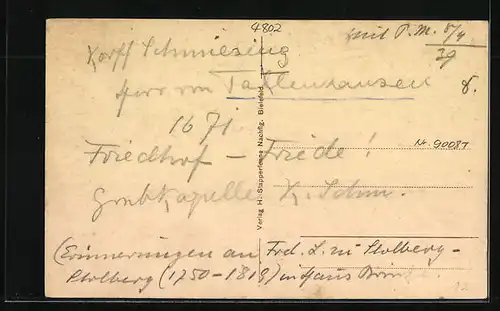 4802
mit P.M. 5/4
39
Korff Schmiesing
Herr von Tatenhausen
8.
1671
Nr. 90087
Friedhof – Friede!
Grabkapelle K. Schm.
Verlag H. Stapperfenne Nachflg. Bielefeld.
(Erinnerungen an Frd. L. zu Stolberg-
Stolberg (1750-1819) in Haus
12